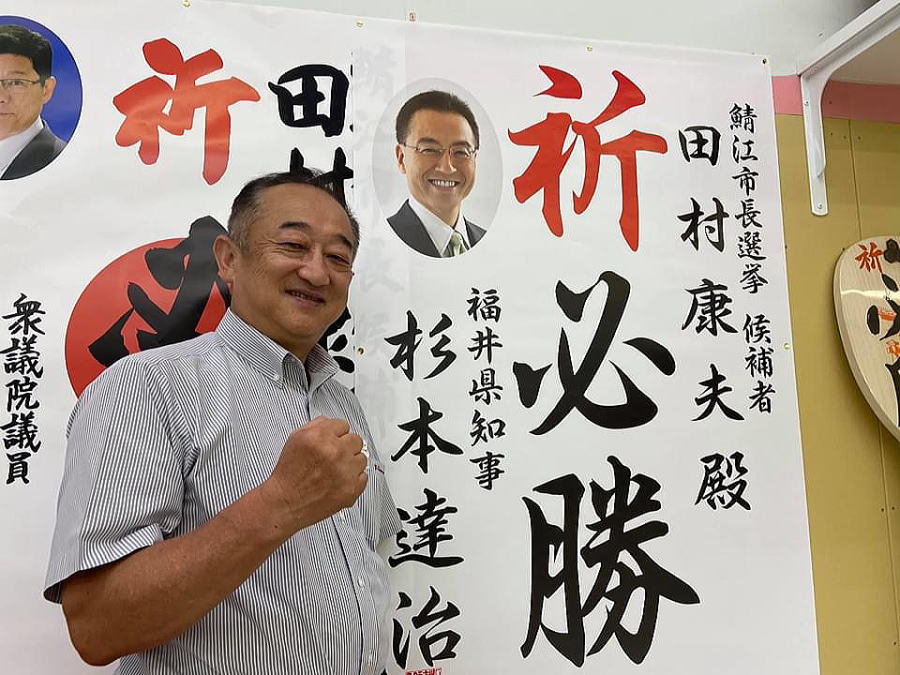 鯖江市長選挙 候補者
田村康夫殿
祈必勝
福井県知事
杉本達治
田村
祈必
衆議院議員
祈